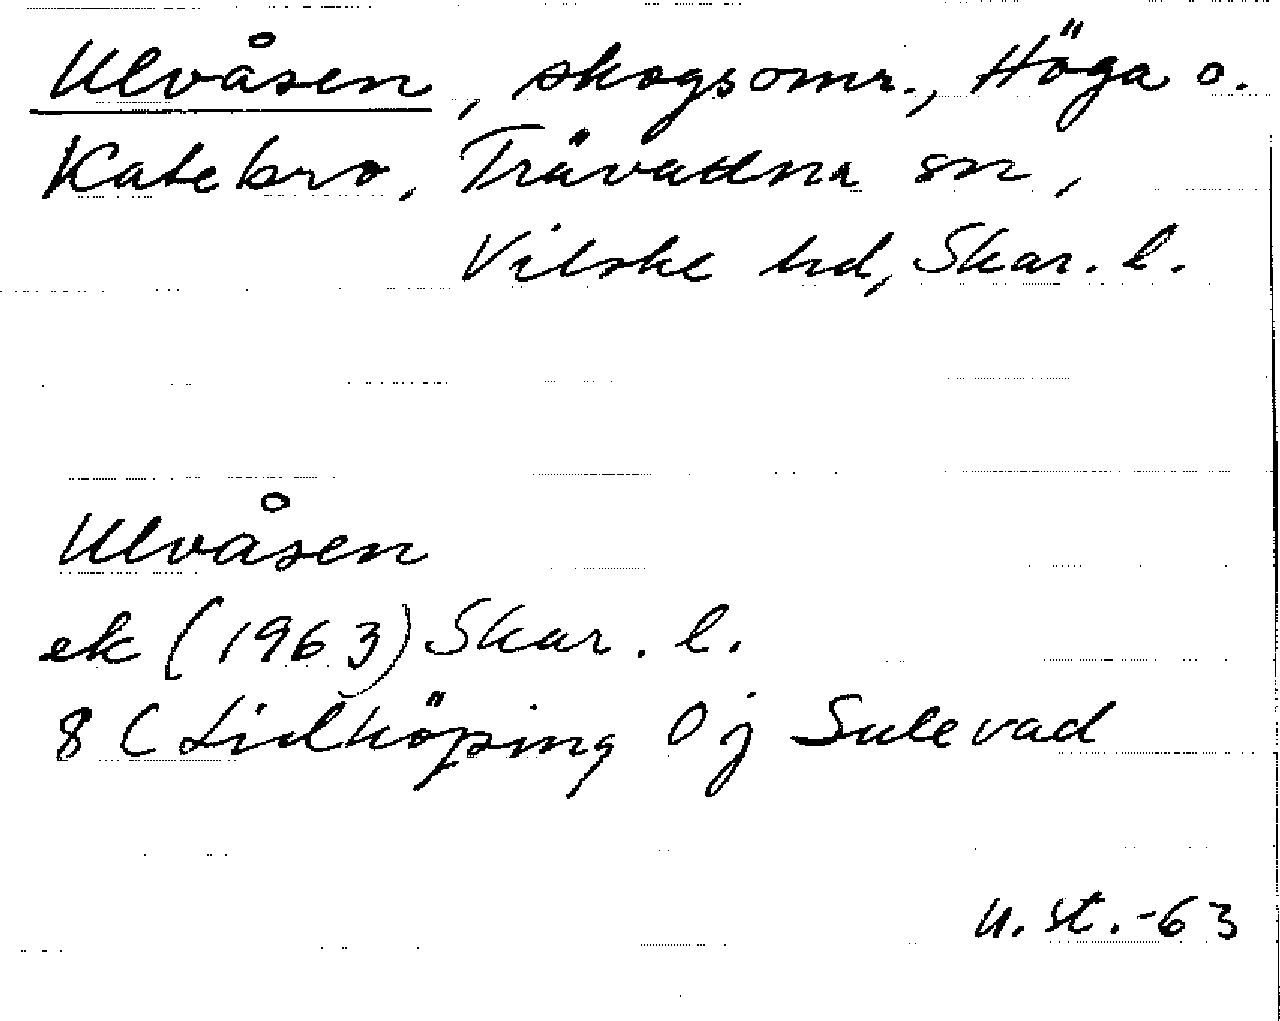 Ulvåsen, skogsomr., Höga o.
Katebro, Trävattna sn,
Vilske hd, Skar. l.
Ulvåsen
ek (1963) Skar. l.
8 C Lidköping 0 j Sulevad
u. st. -63